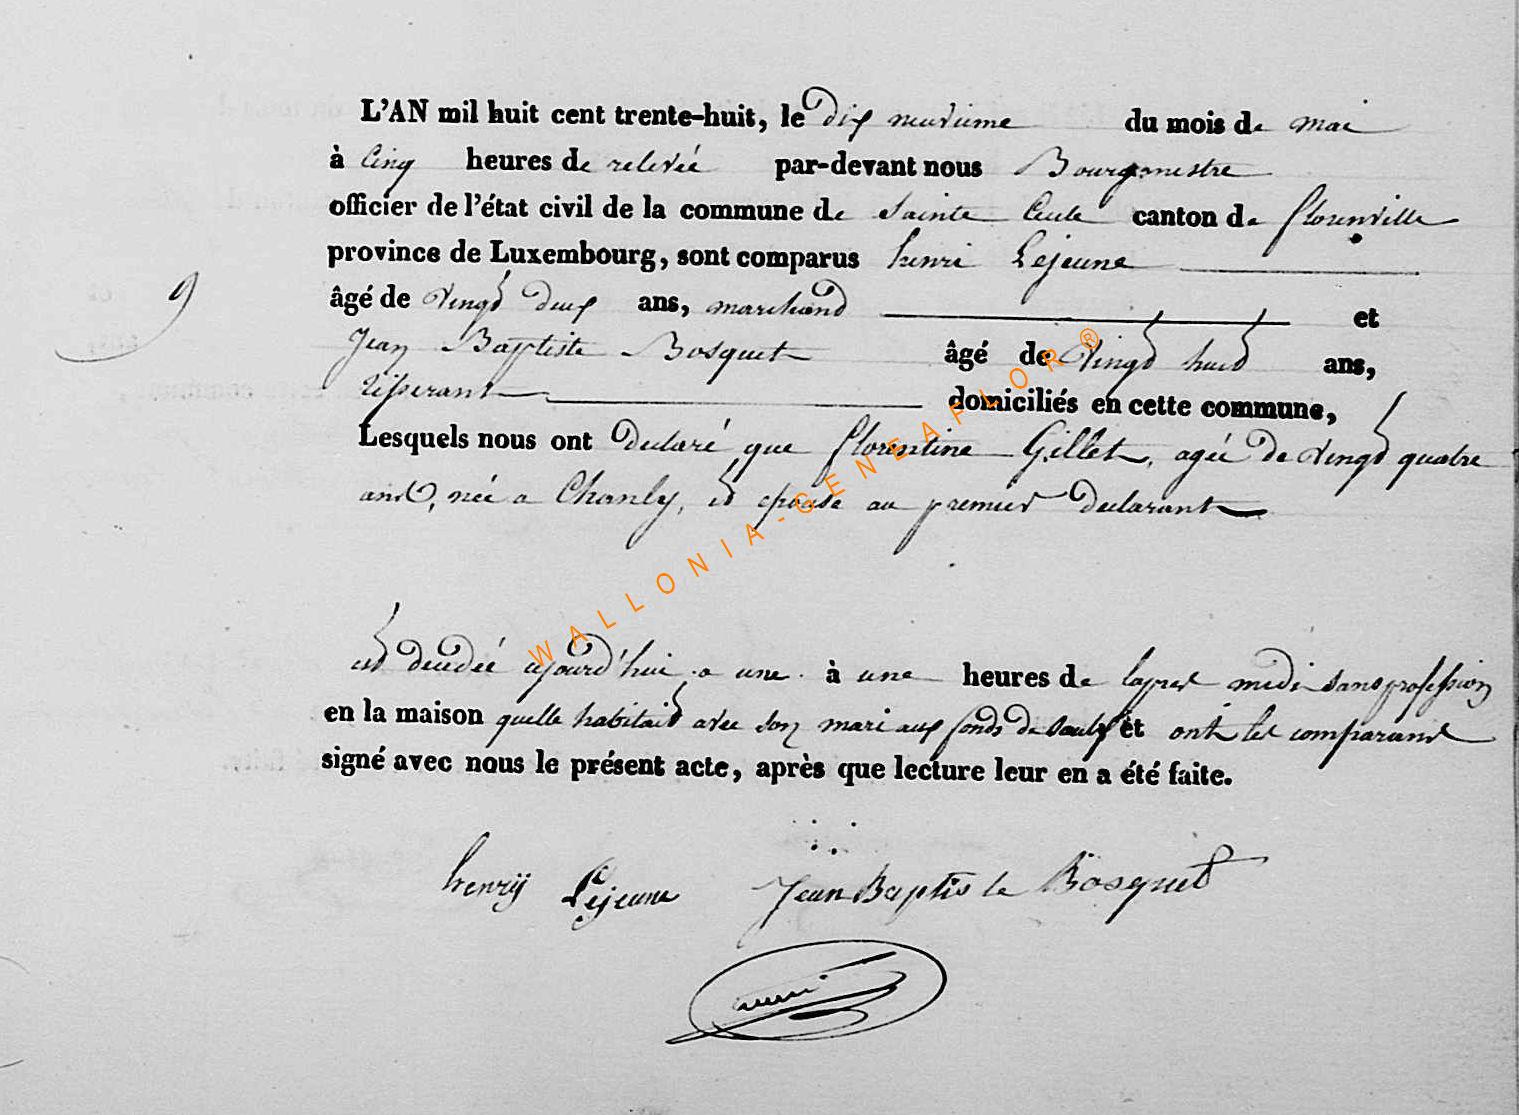 L'AN mil huit cent trente-huit, le dix neuvieme du mois de mai
à Cinq heures de relevée par-devant nous Bourgmestre
officier de l'état civil de la commune de Sainte Cecile canton de florenville
province de Luxembourg, sont comparus henri Lejeune
9
âgé de Vingt deux ans, marchand et
Jean Baptiste Bosquet âgé de Vingt huit ans,
Tisserant domiciliés en cette commune,
Lesquels nous ont declaré que florentine Gillet, agée de Vingt quatre
ans, née a Chanly, et epouse au premier declarant
est decedée ajourd'hui a une à une heures de lapres midi sans profession
en la maison quelle habitait avec son mari aux fonds de Saulx et ont les comparans
signé avec nous le présent acte, après que lecture leur en a été faite.
henrÿ Lejeune Jean Baptis te Bosquet
WALLONIA-GENEAFLOR®